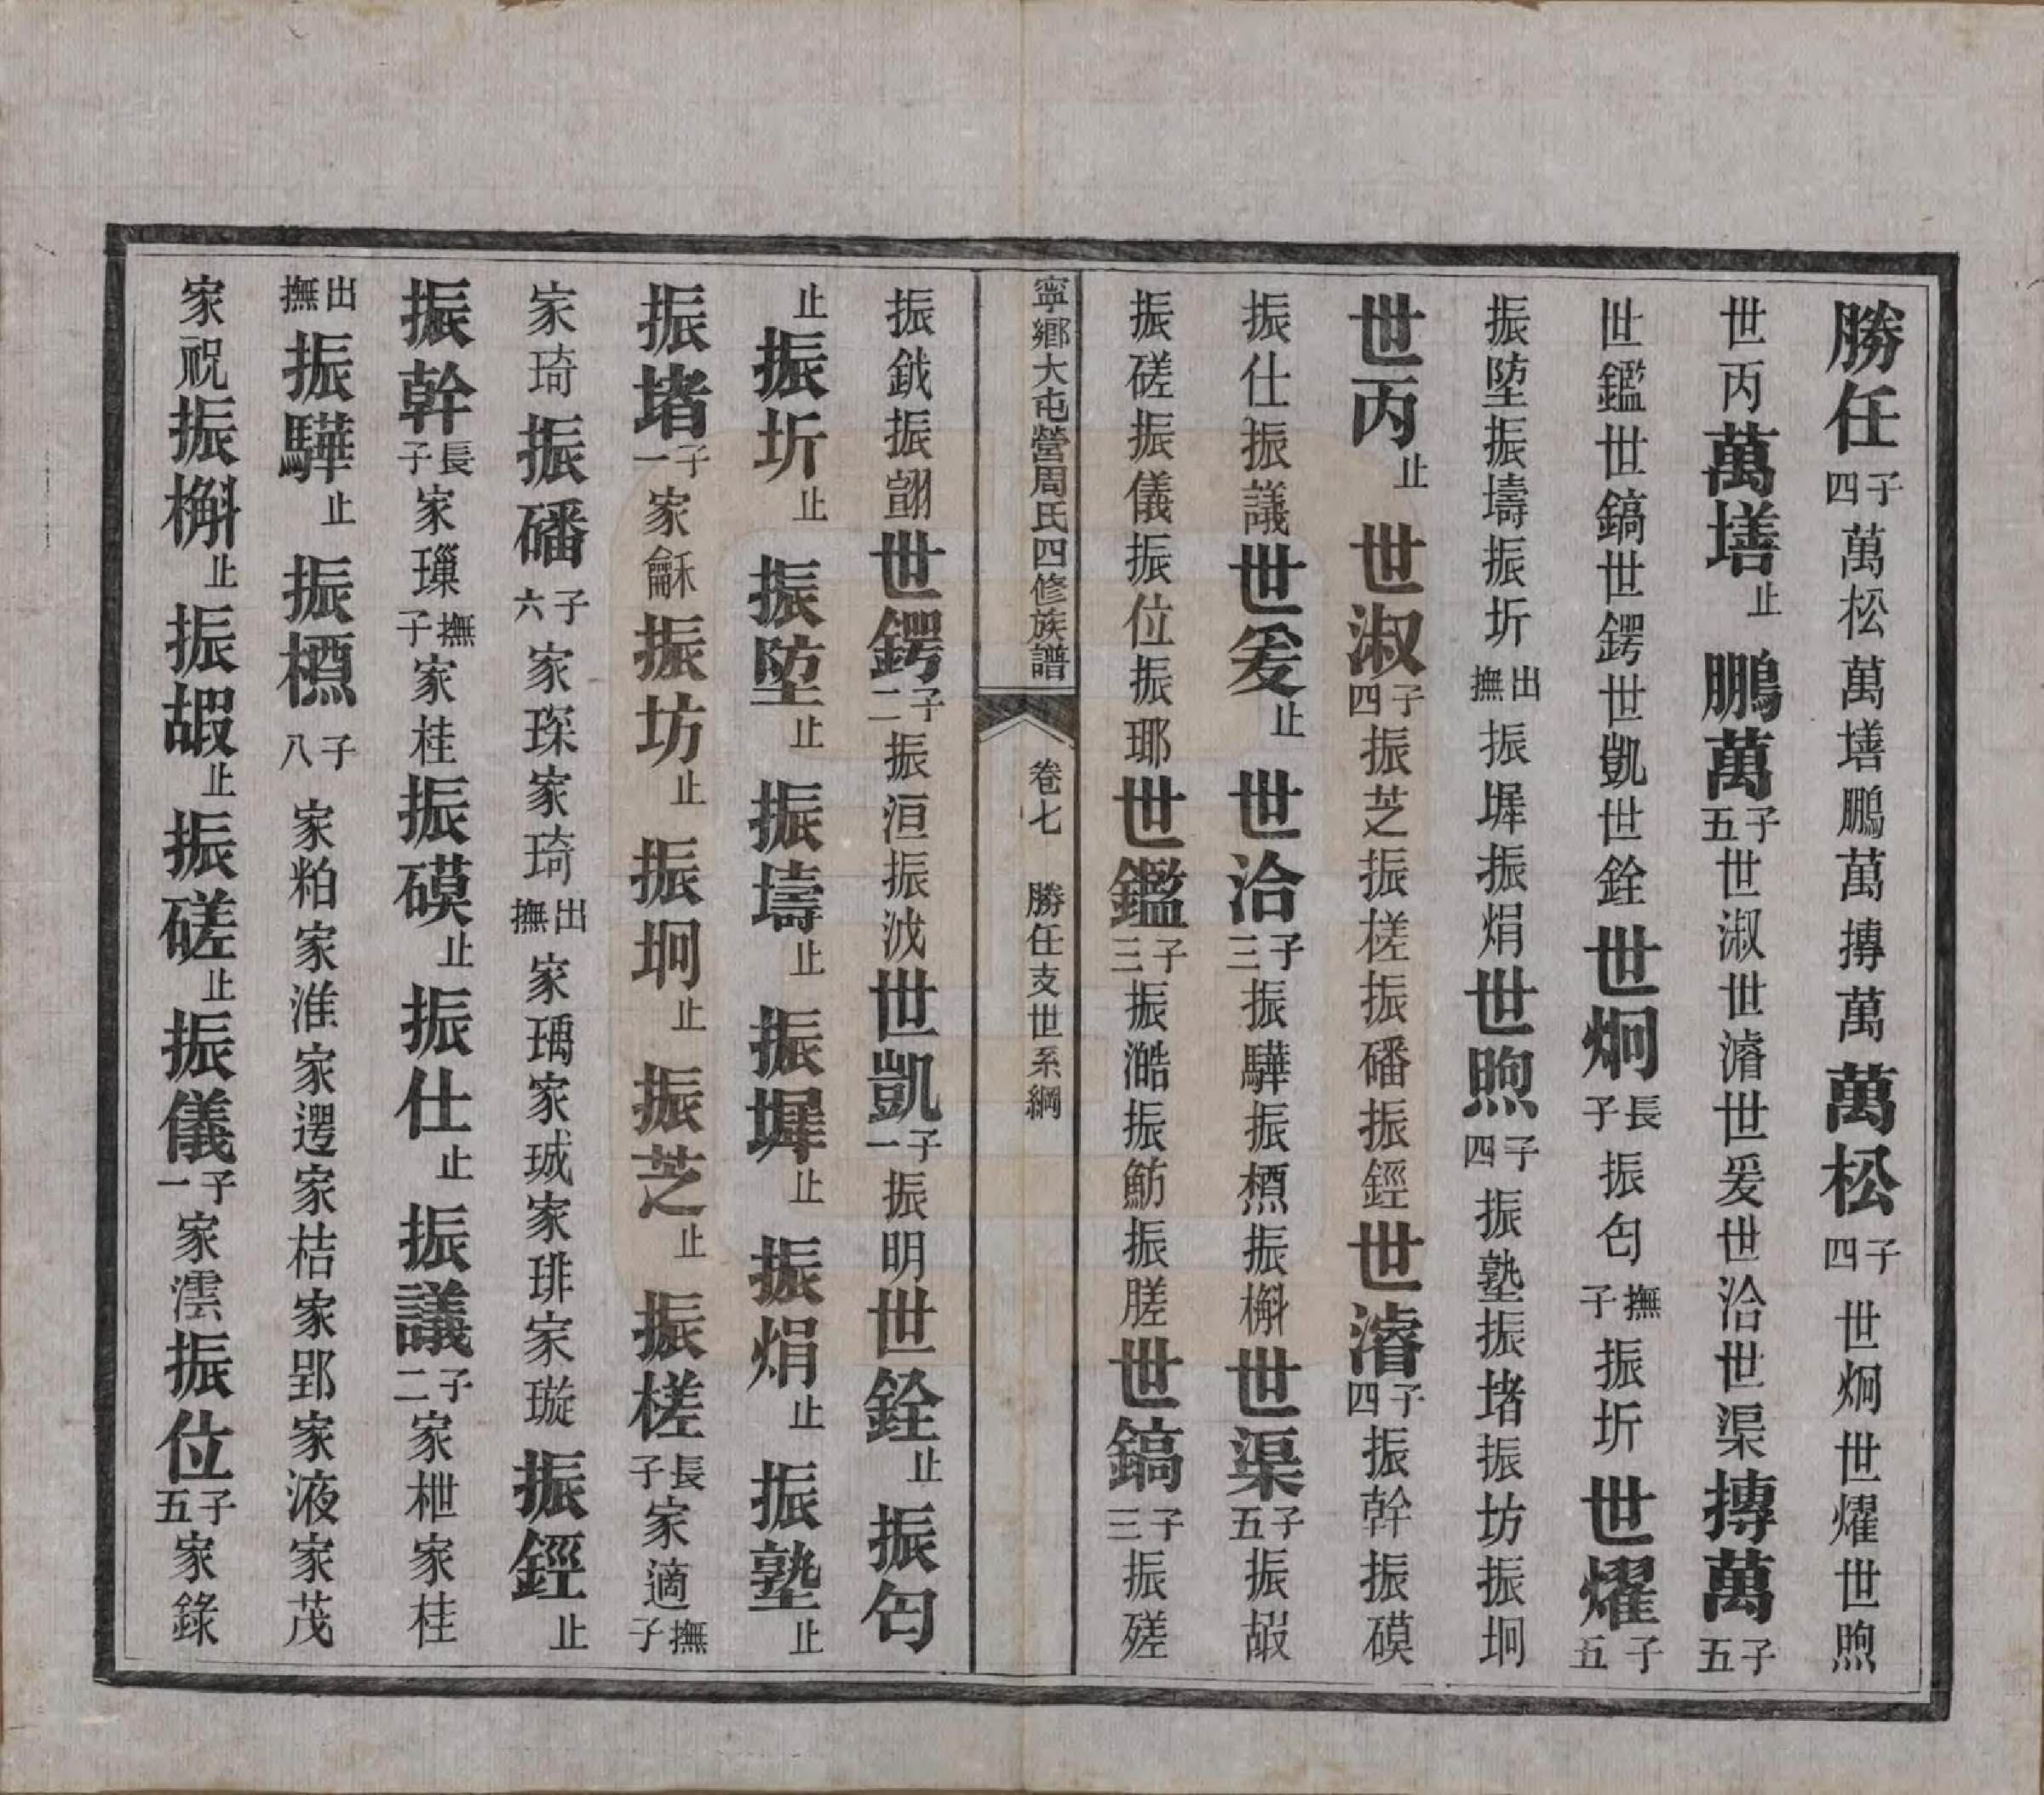 勝任子四萬松萬墡鵬萬摶萬萬松子四世炯世燿世煦
世丙萬墡止鵬萬子五世淑世濬世爰世洽世渠摶萬子五
世鑑世鎬世鍔世凱世銓世炯長子振匂撫子振圻世燿子五
振埅振壔振圻出撫振墀振焆世煦子四振塾振堵振坊振坰
世丙止世淑子四振芝振槎振磻振鏗世濬子四振幹振磺
振仕振議世爰止世洽子三振驊振槱振槲世渠子五振嘏
振磋振儀振位振瑘世鑑子三振澔振魴振䑘世鎬子三振
寧鄉大屯營周氏四修族譜
卷七 勝任支世系綱
振鉞振翧世鍔子二振洹振泧世凱子一振明世銓止振匂
止振圻止振埅止振壔止振墀止振焆止振塾止
振堵子一家龢振坊止振坰止振芝止振槎長子家適撫子
家琦振磻子六家琛家琦出撫家瑀家珹家琲家璇振鏗止
振幹長子家璅撫子家桂振磺止振仕止振議子二家枻家桂
出撫振驊止振槱子八家粕家淮家遻家桔家郢家液家茂
家祝振槲止振嘏止振磋止振儀子一家澐振位子五家錄